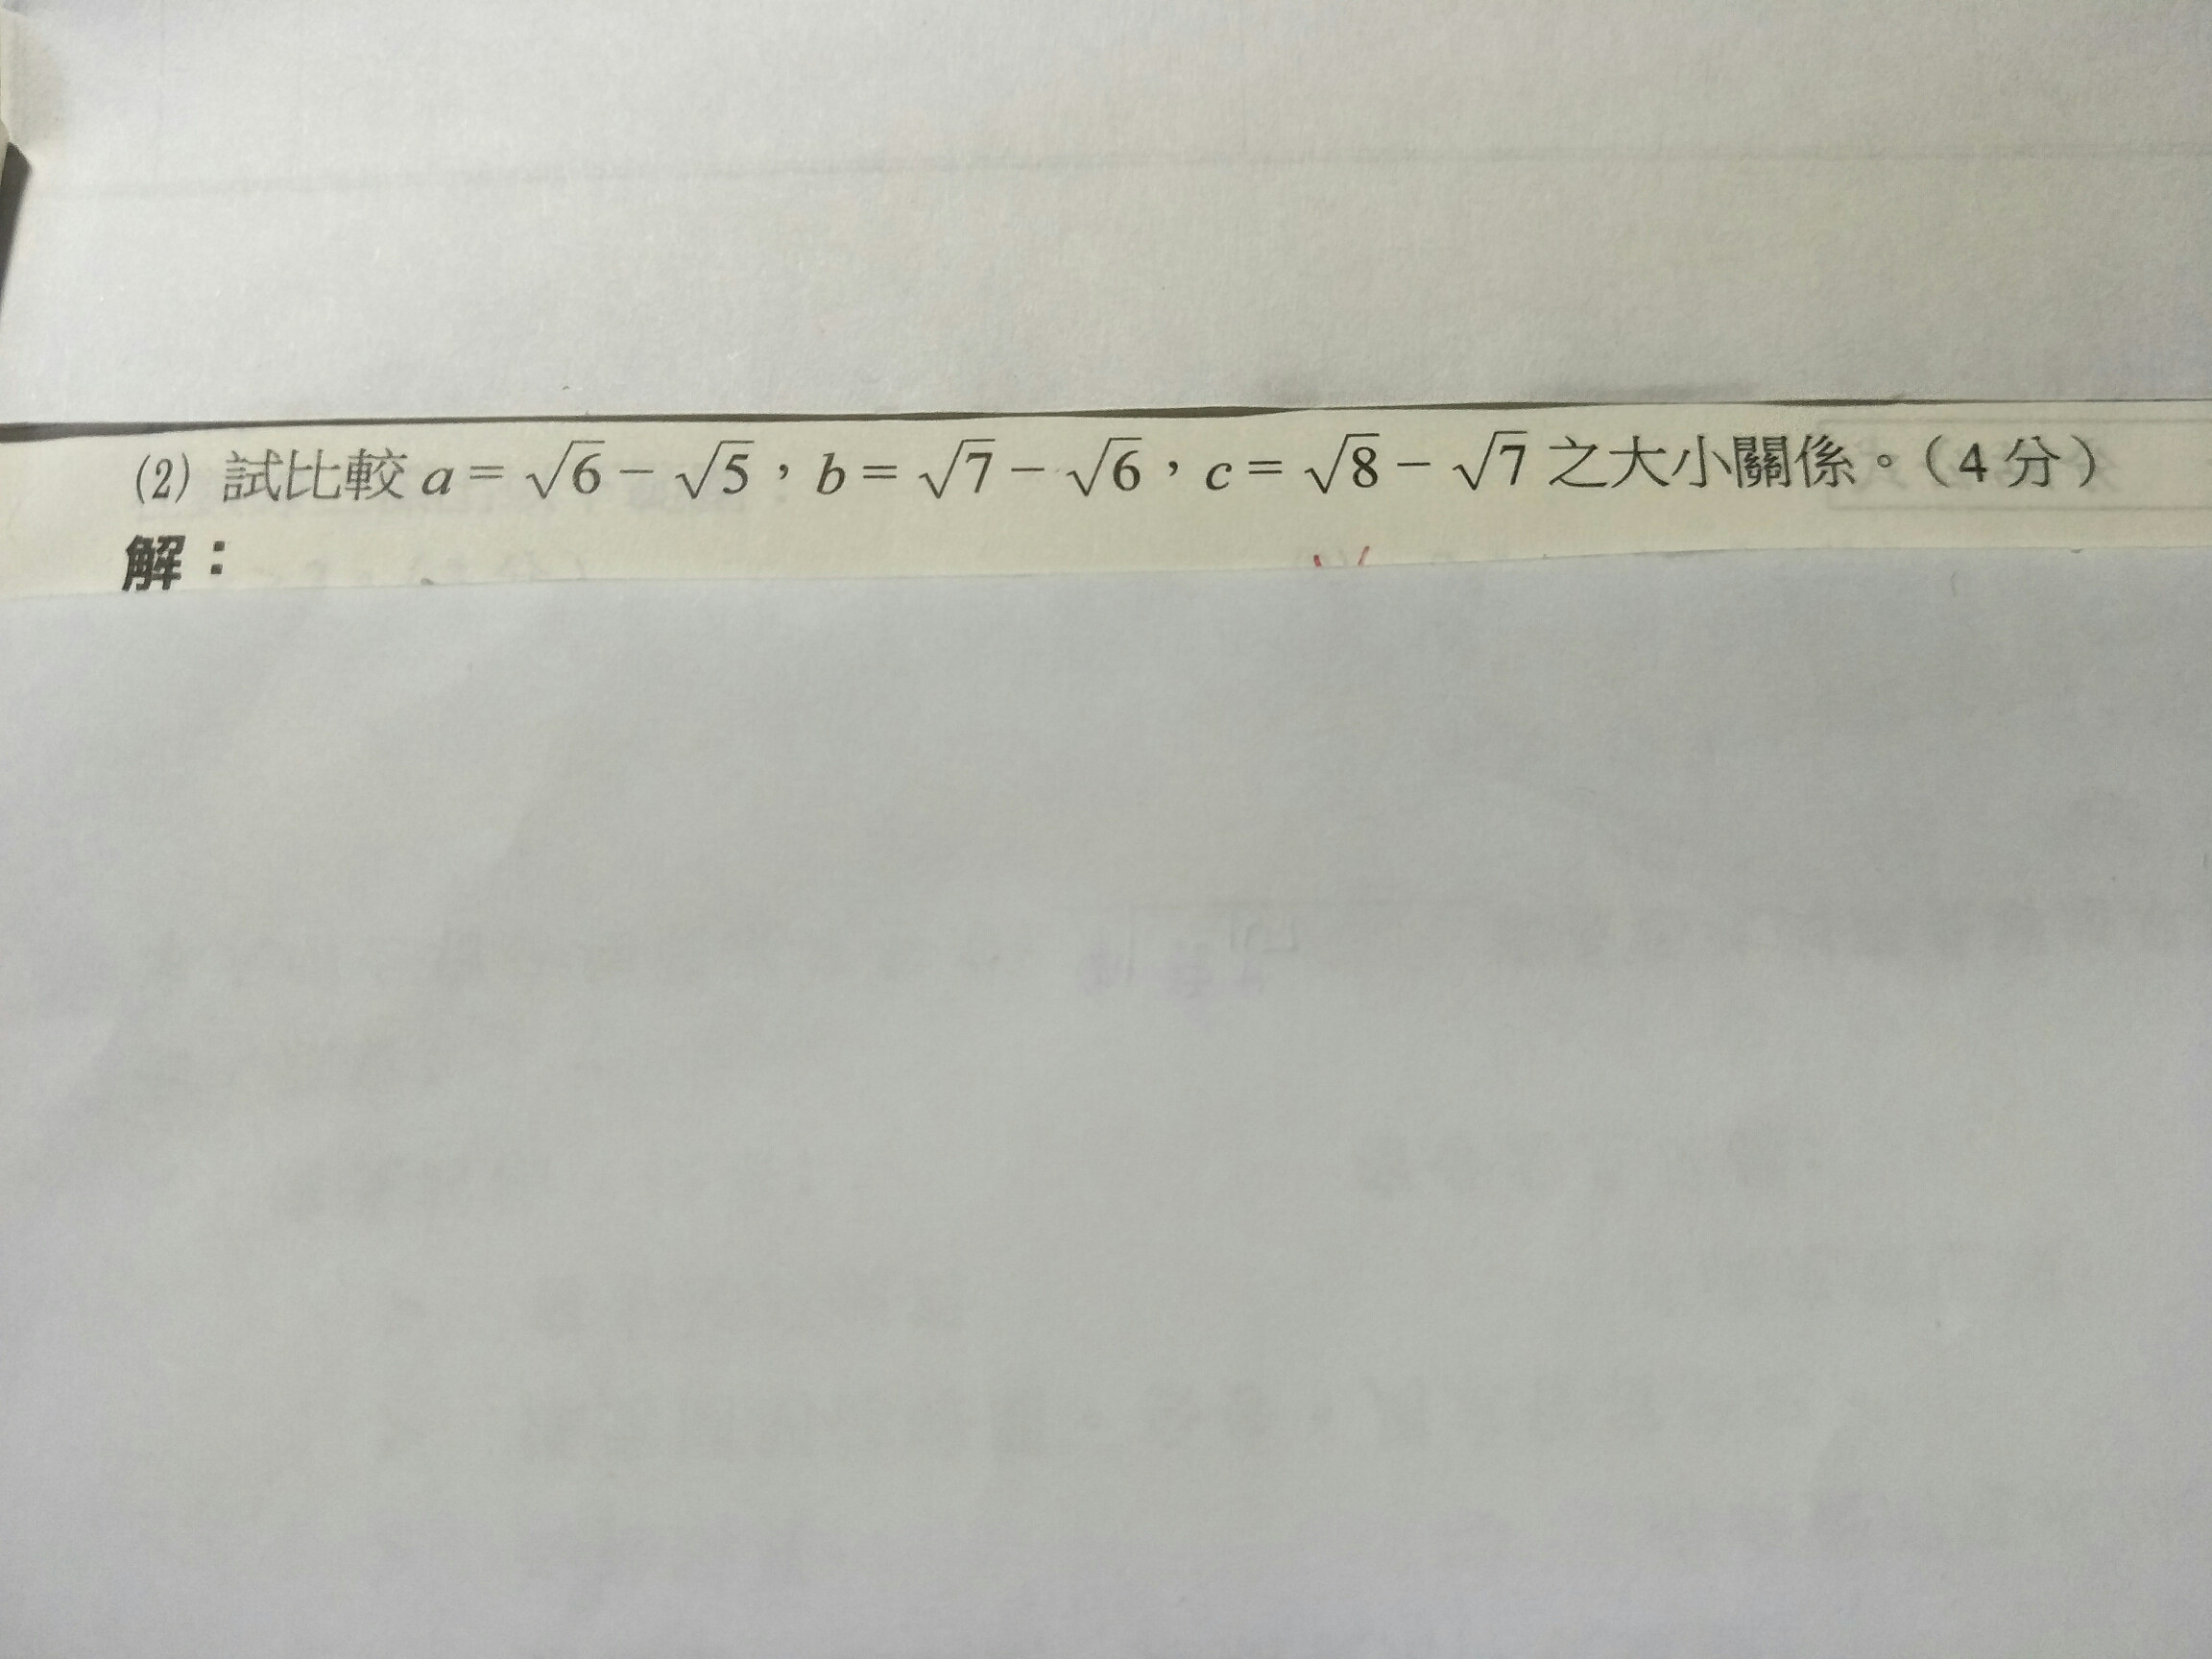 (2) 試比較 a = √6 − √5，b = √7 − √6，c = √8 − √7 之大小關係。（4 分）
解：